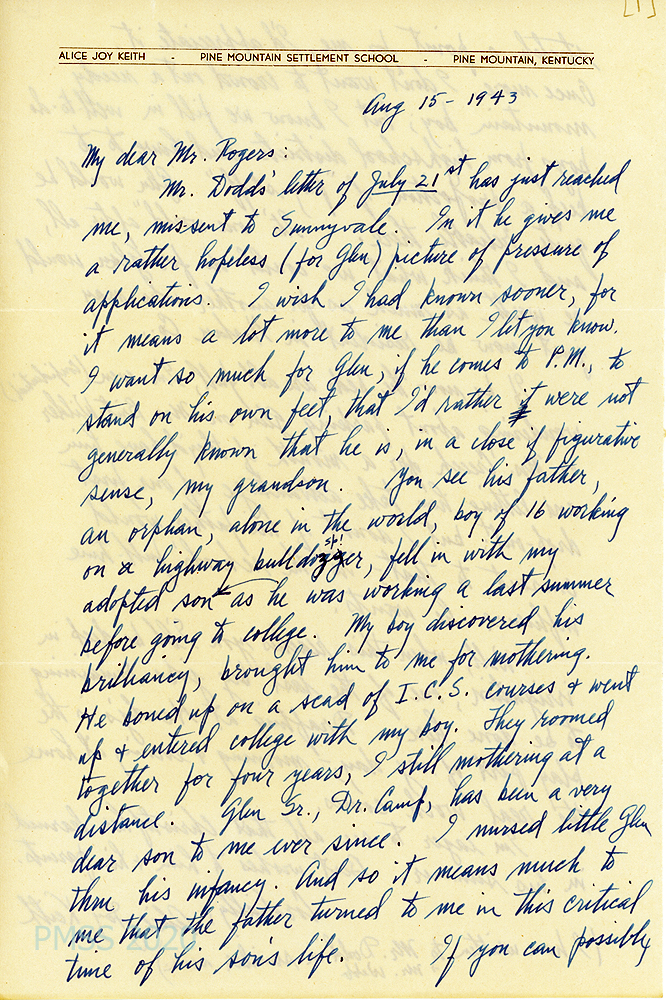 [1]
ALICE JOY KEITH - PINE MOUNTAIN SETTLEMENT SCHOOL - PINE MOUNTAIN, KENTUCKY
Aug 15 - 1943
My dear Mr. Rogers:
Mr. Dodds' letter of July 21st has just reached
me, mis-sent to Sunnyvale. In it he gives me
a rather hopeless (for Glen) picture of pressure of
applications. I wish I had known sooner, for
it means a lot more to me than I let you know.
I want so much for Glen, if he comes to P.M., to
stand on his own feet, that I'd rather it were not
generally known that he is, in a close if figurative
sense, my grandson. You see his father,
an orphan, alone in the world, boy of 16 working
sp!
on a highway bulldogger, fell in with my
adopted son as he was working a last summer
before going to college. My boy discovered his
brilliancy, brought him to me for mothering.
He boned up on a scad of I.C.S. courses & went
up & entered college with my boy. They roomed
together for four years, I still mothering at a
distance. Glen Sr., Dr. Camp, has been a very
dear son to me ever since. I nursed little Glen
thru his infancy. And so it means much to
me that the father turned to me in this critical
time of his son's life. If you can possibly
PMSS 202